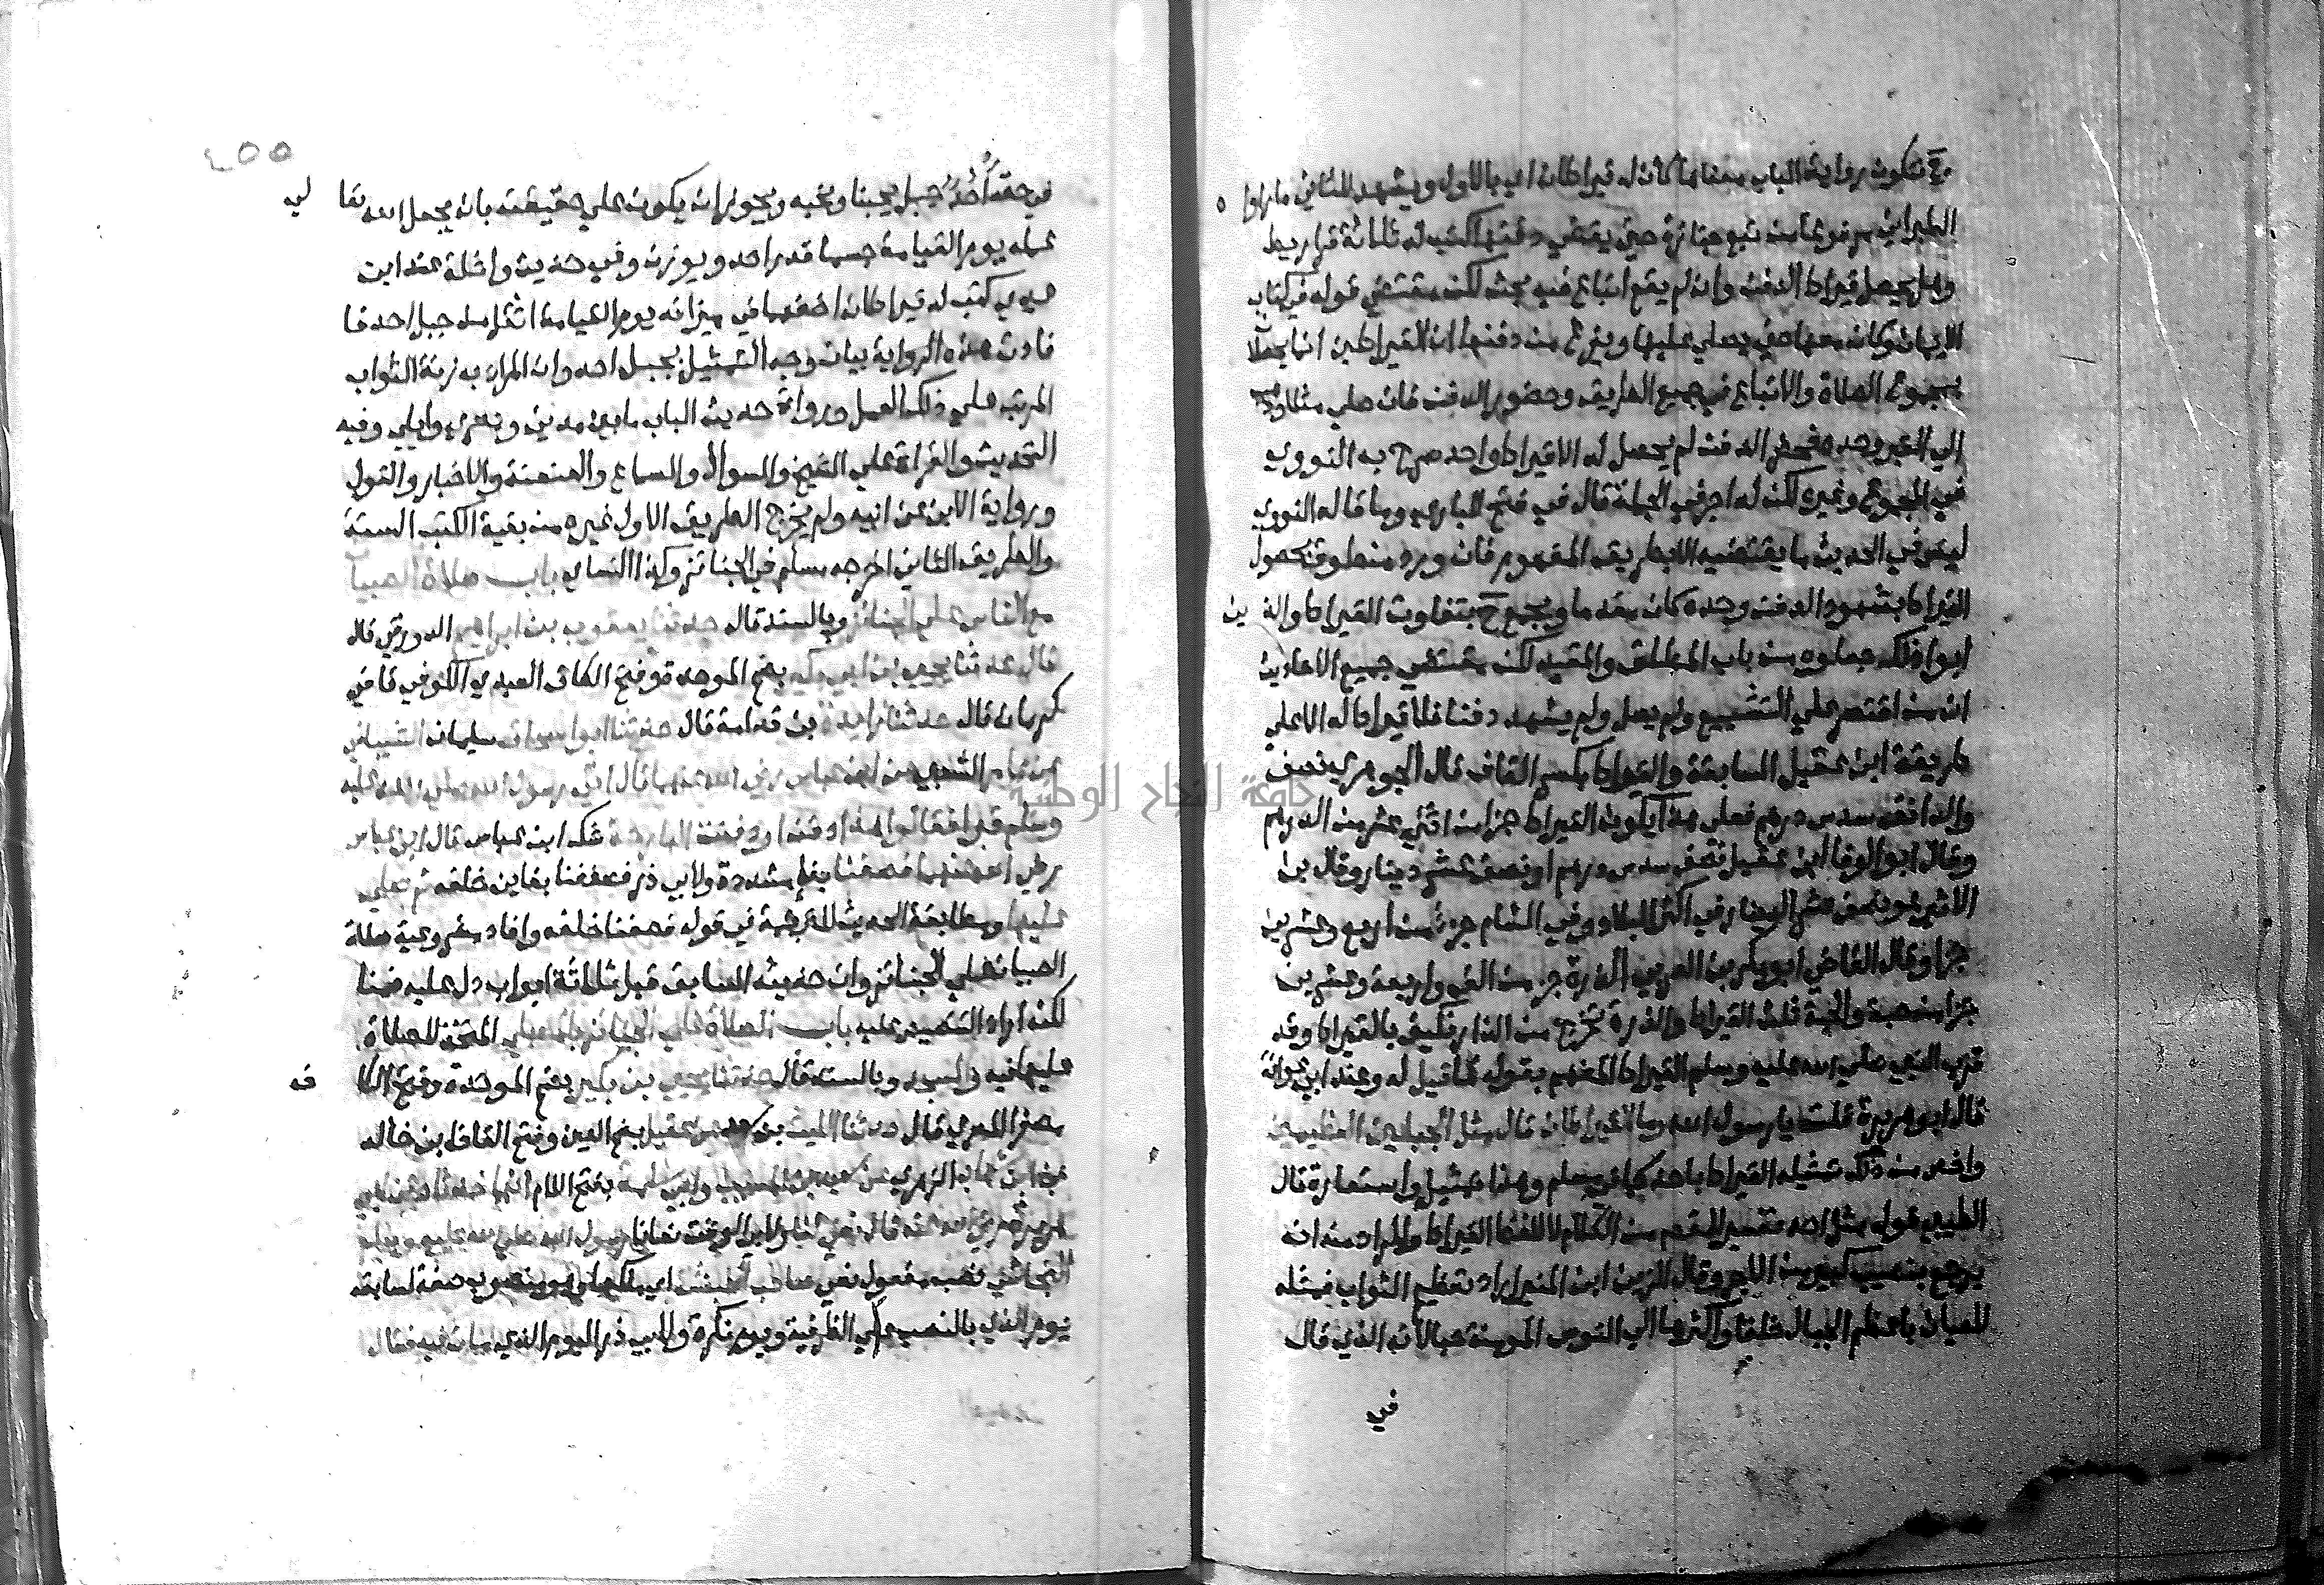 وح فتكون رواية الباب معناها كان له قيراطان اي بالاول ويشهد للثاني ما رواه
الطبراني مرفوعا من تبع جنازة حتى يقضي دفنها كتب له ثلاثة قراريط
وهل يحصل قيراط الدفن وان لم يقع اتباع فيه بحث لكن مقتضي قوله في كتاب
الايمان وكان معها حتى يصلي عليها ويفرغ من دفنها ان القيراطين انما يحصلا
بمجموع الصلاة والاتباع في جميع الطريق وحضور الدفن فان صلي مثلا وذهب
الي القبر وحده فحضر الدفن لم يحصل له الا قيراط واحد صرح به النووي
في المجموع وغيره لكن له اجر في الجملة قال في فتح الباري وما قاله النووي
ليس في الحديث ما يقتضيه الا بطريق المفهوم فان ورد منطوق بحصول
القيراط بشهود الدفن وحده كان مقدما ويجمع ح بتفاوت القيراط والذين
ابوا ذلك جعلوه من باب المطلق والمقيد لكن مقتضي جميع الاحاديث
ان من اقتصر علي التشييع ولم يصل ولم يشهد دفنا فلا قيراط له الا علي
طريقة ابن عقيل السابقة والقيراط بكسر القاف قال الجوهري نصف
والدانق سدس درهم فعلي هذا يكون القيراط جزا من اثني عشر من الدرهم
وقال ابو الوفا ابن عقيل نصف سدس درهم او نصف عشر دينار وقال بن
الاثير هو نصف عشر الدينار في اكثر البلاد وفي الشام جزء من اربع وعشرين
جزا وقال القاضي ابو بكر بن العربي الذرة جزء من الف واربعة وعشرين
جزا من حبة والحبة ثلث القيراط والذرة تخرج من النار فكيف بالقيراط وقد
قرب النبي صلي الله عليه وسلم القيراط للفهم بقوله لما قيل له وعند ابي عوانة
قال ابو هريرة قلت يا رسول الله وما القيراطان قال مثل الجبلين العظيمين
واخص من ذلك تمثيله القيراط باحد كما في مسلم وهذا تمثيل واستعارة قال
الطيبي قوله مثل احد تفسير للمقصود من الكلام لا للفظ القيراط والمراد منه انه
يرجع بنصيب كبير من الاجر وقال الزين ابن المنير اراد تعظيم الثواب فمثله
للعيان باعظم الجبال خلقا واكثرها الي النفوس المومنة حبا لانه الذي قال
في
٤٥٥
في حقه أُحُدٌ جبل يحبنا ونحبه ويجوز ان يكون علي حقيقته بان يجعل الله تعالي
عمله يوم القيامة جسما قدر احد ويوزن وفي حديث واثلة عند ابن
عدي كتب له قيراطان اخفهما في ميزانه يوم القيامة اثقل من جبل احد فا
فادت هذه الرواية بيان وجه التمثيل بجبل احد وان المراد به زنة الثواب
المرتب علي ذلك العمل ورواة حديث الباب ما بين مدني وبصري وايلي وفيه
التحديث والقراة علي الشيخ والسوال والسماع والعنعنة والاخبار والقول
ورواية الابن عن ابيه ولم يخرج الطريق الاول غيره من بقية الكتب الستة
والطريق الثاني اخرجه مسلم في الجنائز وكذا النساي باب صلاة الصبيا
مع الناس علي الجنائز وبالسند قال حدثنا يعقوب بن ابراهيم الدورقي قال
قال حدثنا يحيى بن ابي بكير بضم الموحدة وفتح الكاف العبدي الكوفي قاضي
كرمان قال حدثنا زايدة بن قدامة قال حدثنا ابو اسحاق سليمان الشيباني
عن عامر الشعبي عن ابن عباس رضي الله عنهما قال اتي رسول الله صلي الله عليه
وسلم قبرا فقالوا هذا دفن او دفنت البارحة شك ابن عباس قال ابن عباس
رضي الله عنهما فصفنا بفاء مشددة ولابي ذر فصففنا بفاين خلفه ثم صلي
عليها ومطابقة الحديث للترجمة في قوله فصفنا خلفه وافاد مشروعية صلاة
الصبيان علي الجنائز وان حديثه السابق قبل ثلاثة ابواب دل عليه ضمنا
لكنه اراد التنصيص عليه باب الصلاة علي الجنائز بالمصلي المتخذ للصلاة
عليها فيه والمسجد وبالسند قال حدثنا يحيى بن بكير بضم الموحدة وفتح الكاف
مصغر المصري قال حدثنا الليث بن سعد عن عقيل بضم العين وفتح القاف بن خالد
عن ابن شهاب الزهري عن سعيد بن المسيب وابي سلمة بفتح اللام انهما حدثاه عن ابي
هريرة رضي الله عنه قال نعي لنا ولابي الوقت نعانا رسول الله صلي الله عليه وسلم
النجاشي نصب مفعول نعي صاحب الحبشة اي ملكها وهو منصوب صفة لسابقه
يوم الذي بالنصب علي الظرفية ويوم نكرة ولابي ذر اليوم الذي مات فيه فقال